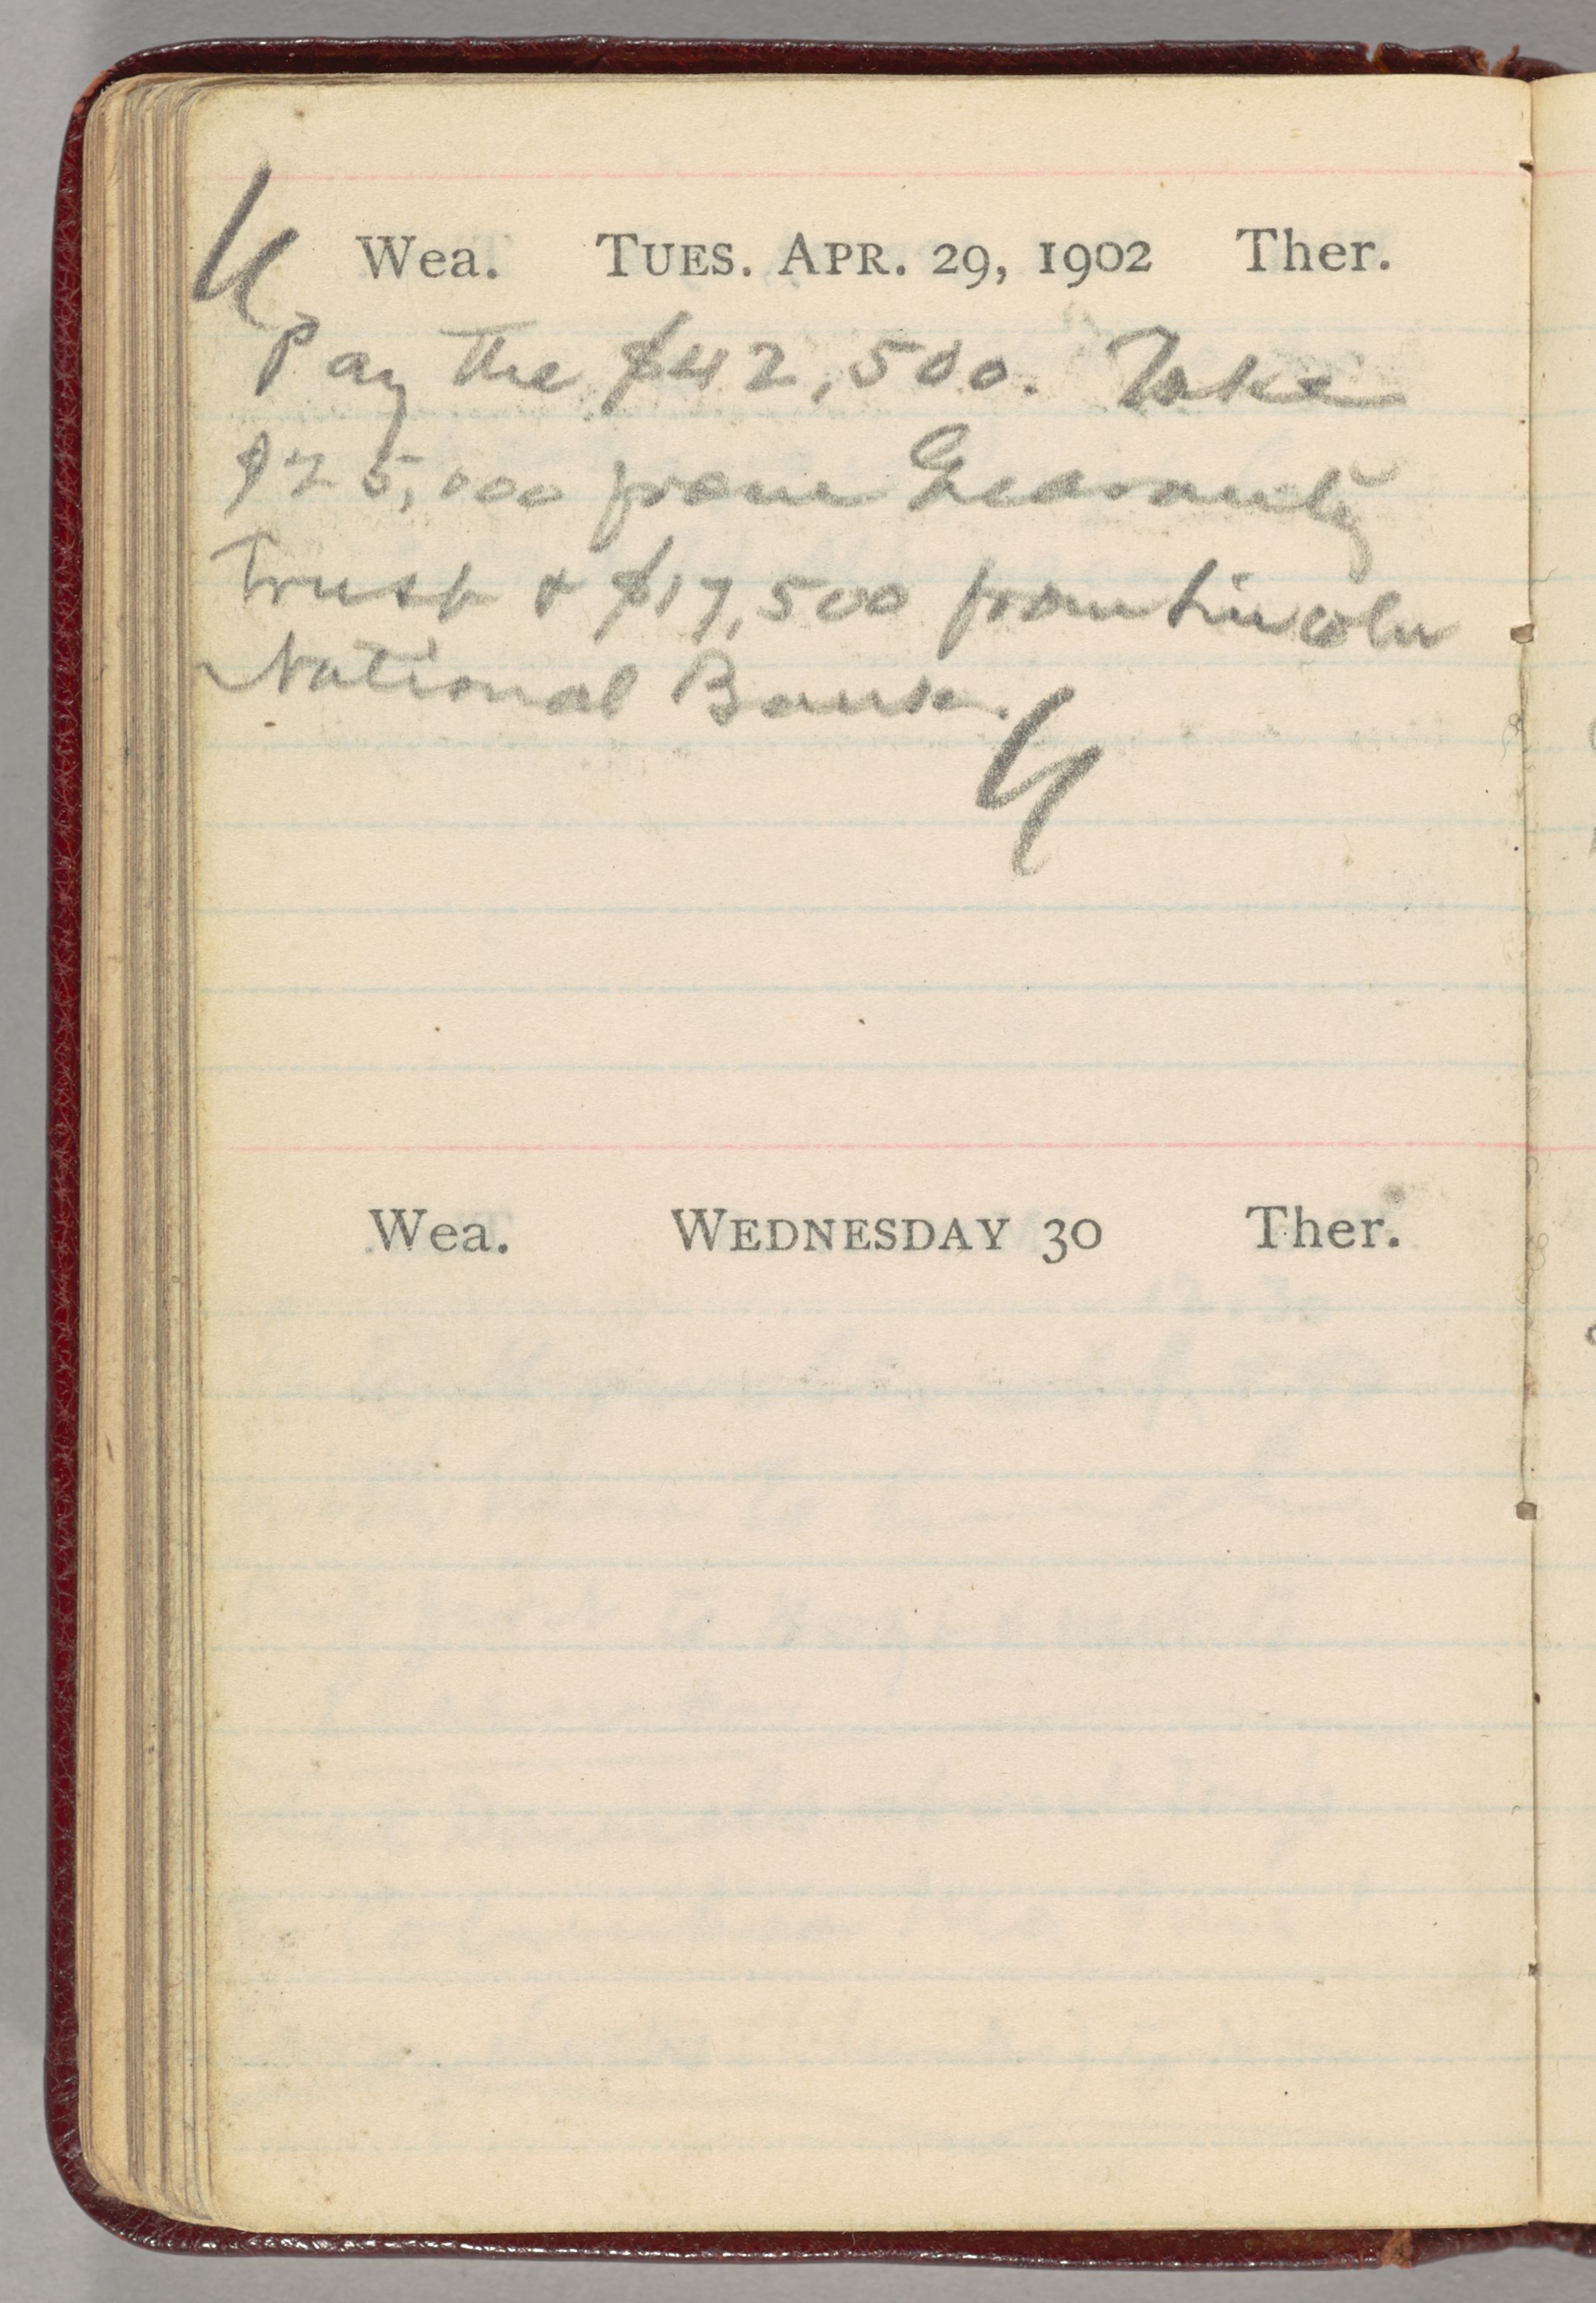 Wea. TUES. APR. 29, 1902 Ther.
Pay the $42,500. Take
$25,000 from Guaranty
Trust & $17,500 from Lincoln
National Bank.
Wea. WEDNESDAY 30 Ther.